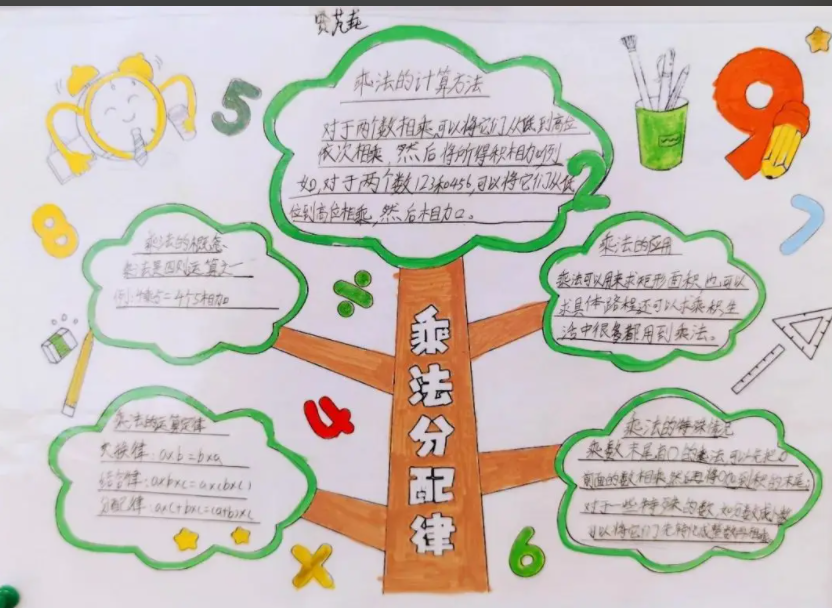 乘法的计算方法
对于两个数相乘,可以将它们从低到高位
依次相乘,然后将所得积相加例
如,对于两个数123和456,可以将它们从低
位到高位相乘,然后相加。
5
2
9
8
7
乘法的概念
乘法是四则运算之一
例:4×5=4个5相加
乘法的应用
乘法可以用来求矩形面积也可以
求具体路程还可以求乘积生
活中很多都用到乘法。
乘法分配律
4
乘法的运算定律
交换律:a×b=b×a
结合律:a×b×c=a×(b×c)
分配律:a×c+b×c=(a+b)×c
乘法的特殊情况
乘数末尾有0的乘法,可以先把0
前面的数相乘,然后再将0加到积的末尾;
对于一些特殊的数,如
可以将它们先转化成整数
X
6